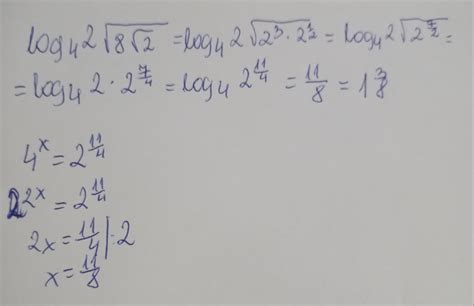 log₄2√(8√2) = log₄2√(2³·2^(1/2)) = log₄2√(2^(7/2)) =
= log₄2·2^(7/4) = log₄2^(11/4) = 11/8 = 1 3/8
4^x = 2^(11/4)
2^(2x) = 2^(11/4)
2x = 11/4 |:2
x = 11/8